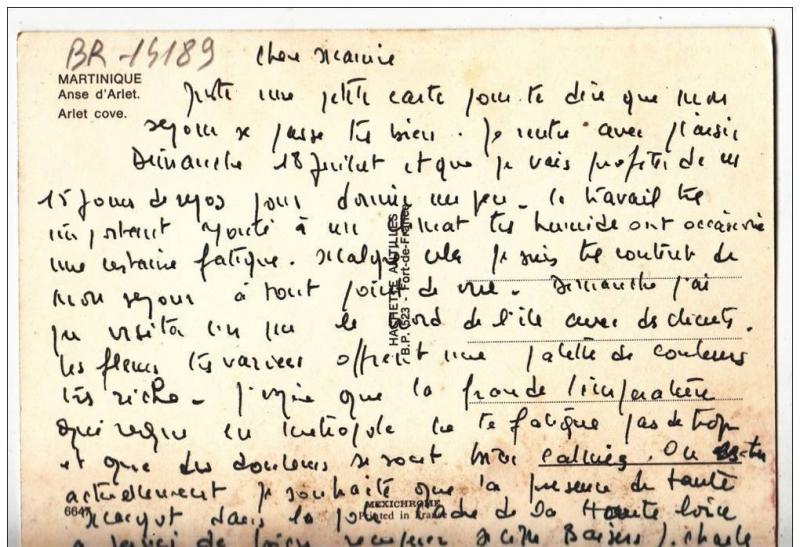 BR-15189
MARTINIQUE
Anse d'Arlet.
Arlet cove.
Juste une petite carte pour te dire que mon
sejour se passe très bien. Je rentre avec plaisir
Dimanche 18 Juillet et que je vais profiter de
15 jours de repos pour dormir un peu. Le travail très
important ajouté à un climat très humide ont occasionné
une certaine fatigue. Malgré cela je suis très content de
mon sejour à tout point de vue. Dimanche j'ai
pu visiter un peu le Nord de l'île avec des clients.
Les fleurs très variées offrent une palette de couleurs
très riche. J'espère que la grande température
qui regne en metropole ne te fatigue pas de trop
et que tes douleurs se sont bien calmées. Ou es tu
actuellement je souhaite que la presence de tante
dans la de la Haute Loire
de Baisers J. Charles
HACHETTE ANTILLES
B.P. 523 - Fort-de-France
6647
MEXICHROME
Printed in France